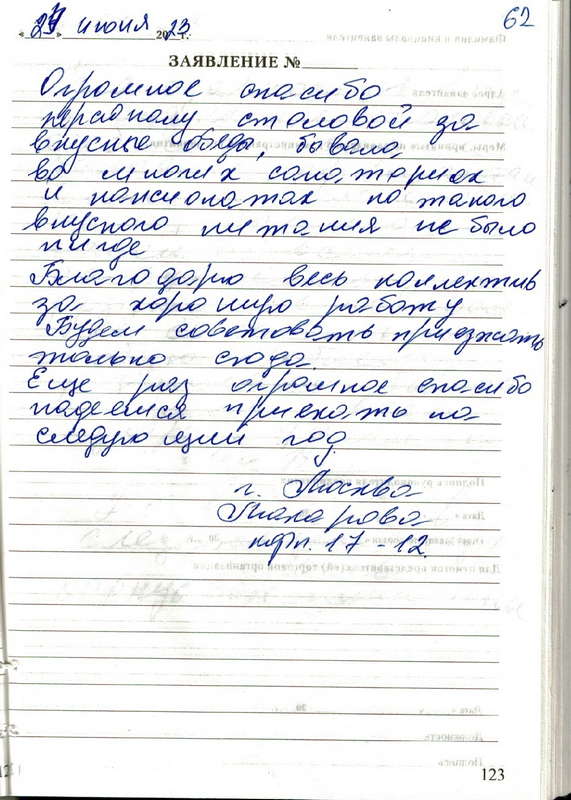 62
«24» июня 2023 г.
ЗАЯВЛЕНИЕ №
Огромное спасибо
персоналу столовой за
вкусные обеды, бывала
во многих санаториях
и пансионатах но такого
вкусного питания не было
нигде
Благодарю весь коллектив
за хорошую работу
Будем советовать приезжать
только сюда.
Еще раз огромное спасибо
надеемся приехать на
следующий год.
г. Москва
Макарова
корп. 17-12.
123